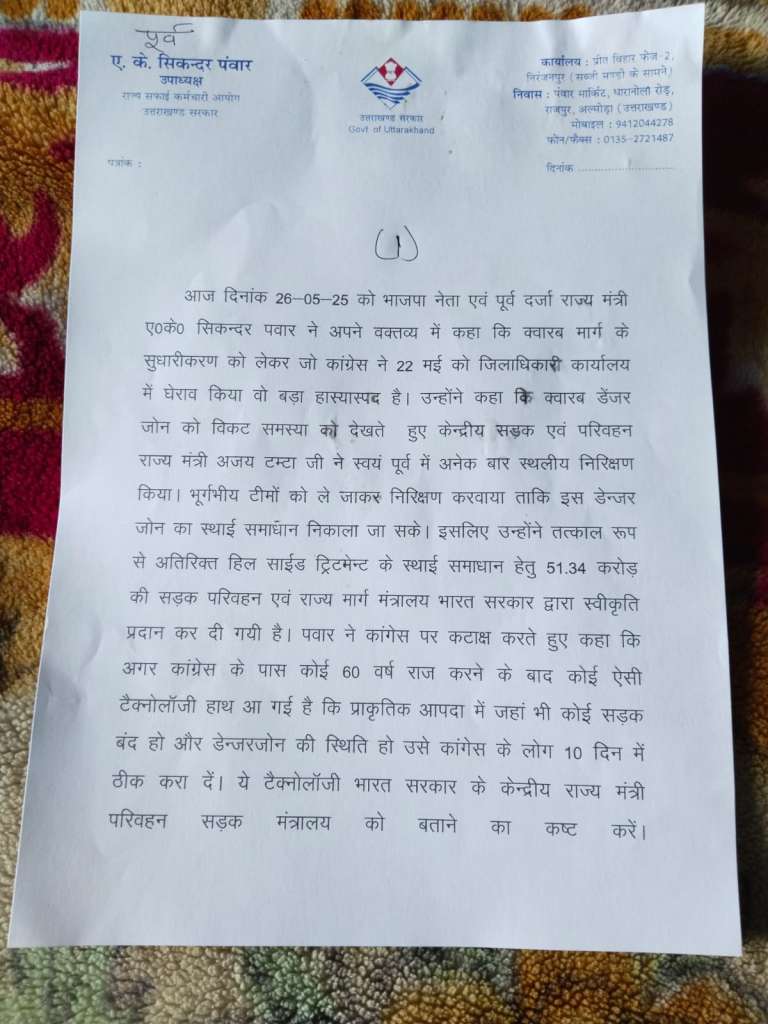 पूर्व
ए. के. सिकन्दर पंवार
उपाध्यक्ष
राज्य सफाई कर्मचारी आयोग
उत्तराखण्ड सरकार
उत्तराखण्ड सरकार
Govt of Uttarakhand
कार्यालय : प्रीत विहार फेज-2,
निरंजनपुर (सब्जी मण्डी के सामने)
निवास : पंवार मार्किट, धारानौला रोड़,
राजपुर, अल्मोड़ा (उत्तराखण्ड)
मोबाइल : 9412044278
फोन/फैक्स : 0135-2721487
पत्रांक :
दिनांक ............................
(1)
आज दिनांक 26–05–25 को भाजपा नेता एवं पूर्व दर्जा राज्य मंत्री
ए0के0 सिकन्दर पवार ने अपने वक्तव्य में कहा कि क्वारब मार्ग के
सुधारीकरण को लेकर जो कांग्रेस ने 22 मई को जिलाधिकारी कार्यालय
में घेराव किया वो बड़ा हास्यास्पद है। उन्होंने कहा कि क्वारब डेंजर
जोन को विकट समस्या को देखते हुए केन्द्रीय सड़क एवं परिवहन
राज्य मंत्री अजय टम्टा जी ने स्वयं पूर्व में अनेक बार स्थलीय निरिक्षण
किया। भूर्गभीय टीमों को ले जाकर निरिक्षण करवाया ताकि इस डेन्जर
जोन का स्थाई समाधान निकाला जा सके। इसलिए उन्होंने तत्काल रूप
से अतिरिक्त हिल साईड ट्रिटमेन्ट के स्थाई समाधान हेतु 51.34 करोड़
की सड़क परिवहन एवं राज्य मार्ग मंत्रालय भारत सरकार द्वारा स्वीकृति
प्रदान कर दी गयी है। पवार ने कांगेस पर कटाक्ष करते हुए कहा कि
अगर कांग्रेस के पास कोई 60 वर्ष राज करने के बाद कोई ऐसी
टैक्नोलॉजी हाथ आ गई है कि प्राकृतिक आपदा में जहां भी कोई सड़क
बंद हो और डेन्जरजोन की स्थिति हो उसे कांगेस के लोग 10 दिन में
ठीक करा दें। ये टैक्नोलॉजी भारत सरकार के केन्द्रीय राज्य मंत्री
परिवहन सड़क मंत्रालय को बताने का कष्ट करें।